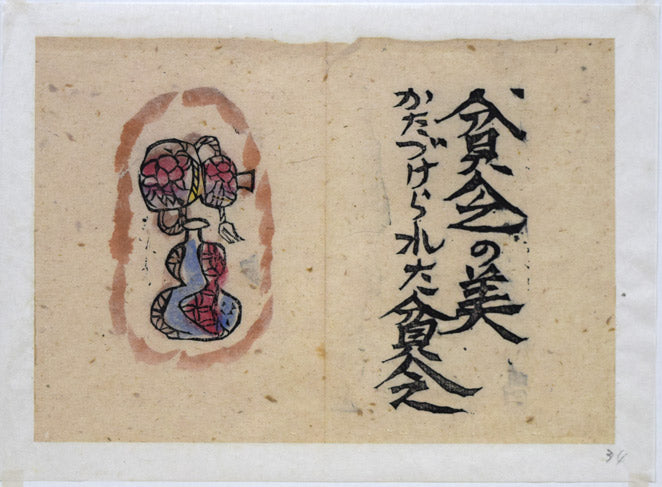 貧乏の美
かたづけられた貧乏
34